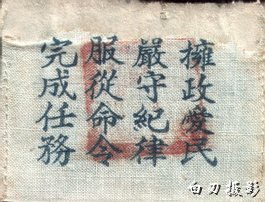 擁政愛民
嚴守紀律
服從命令
完成任務
白刃摄影